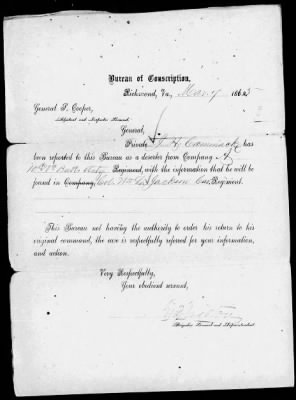 Bureau of Conscription,
Richmond, Va., Mar 7 1865
General S. Cooper,
Adjutant and Inspector General.
General,
Private Cammack has
been reported to this Bureau as a deserter from Company A,
10th Va Batt Arty Regiment, with the information that he will be
found in Company, Col Wm L. Jackson Cav Regiment.
This Bureau not having the authority to order his return to his
original command, the case is respectfully referred for your information,
and action.
Very Respectfully,
Your obedient servant,
Brigadier General and Superintendent.